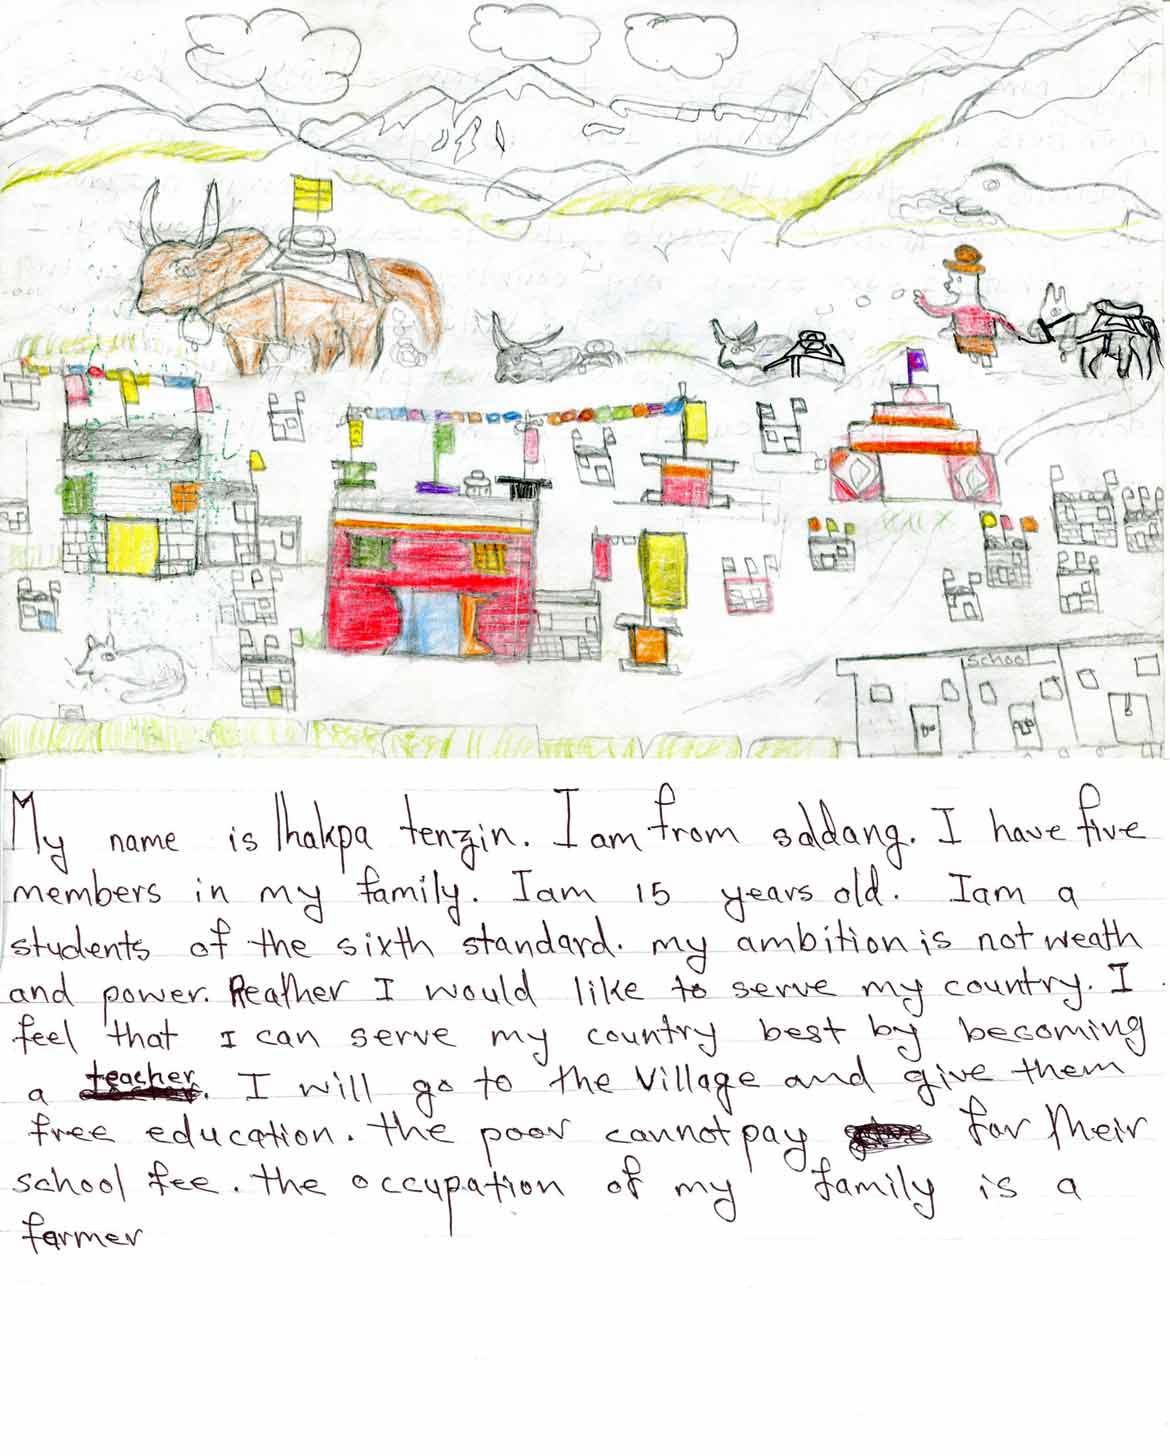 school
My name is lhakpa tenzin. I am from saldang. I have five
members in my family. Iam 15 years old. Iam a
students of the sixth standard. my ambition is not weath
and power. Reather I would like to serve my country. I
feel that I can serve my country best by becoming
a teacher. I will go to the village and give them
free education. the poor cannot pay for their
school fee. the occupation of my family is a
farmer